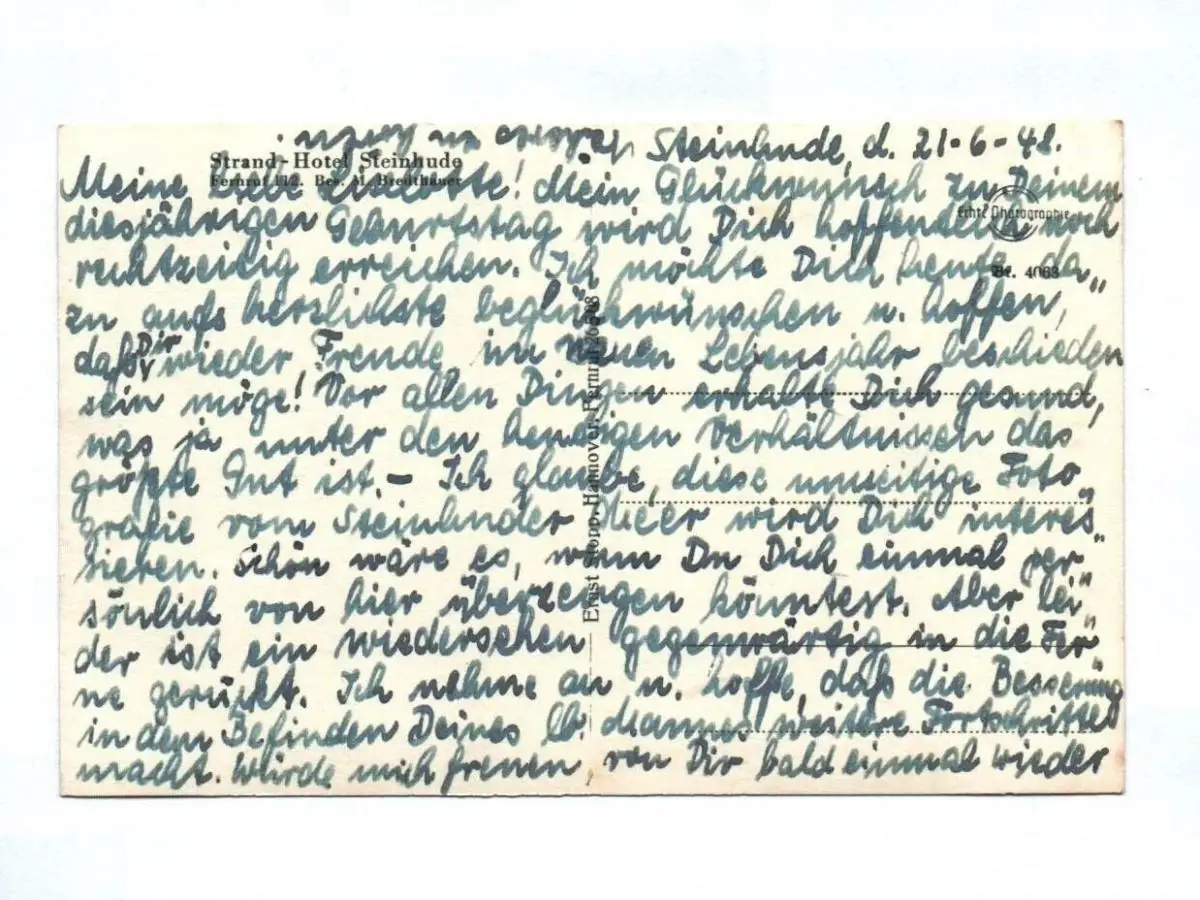 Steinhude, d. 21-6-48.
Strand-Hotel Steinhude
Fernruf 112. Bes. M. Bredthauer
Meine Liebe ! Mein Glückwunsch zu Deinem
diesjährigen Geburtstag wird Dich hoffendlich noch
Echte Photographie
rechtzeitig erreichen. Ich möchte Dich heute da„
Br. 4063
zu aufs herzlichste beglückwünschen u. hoffen,
daß Dir wieder Freude im neuen Lebensjahr beschieden
sein möge! Vor allen Dingen erhalte Dich gesund,
was ja unter den heutigen Verhältnissen das
größte Gut ist. – Ich glaube, diese umseitige Foto„
grafie vom Steinhuder Meer wird Dich interes„
sieren. Schön wäre es, wenn Du Dich einmal per„
sönlich von hier überzeugen könntest. Aber lei„
der ist ein wiedersehen gegenwärtig in die Fer„
ne gerückt. Ich nehme an u. hoffe, daß die Besserung
in dem Befinden Deines lb. Mannes weitere Fortschritte
macht. Würde mich freuen, von Dir bald einmal wieder
Ernst Stopp, Hannover, Fernruf